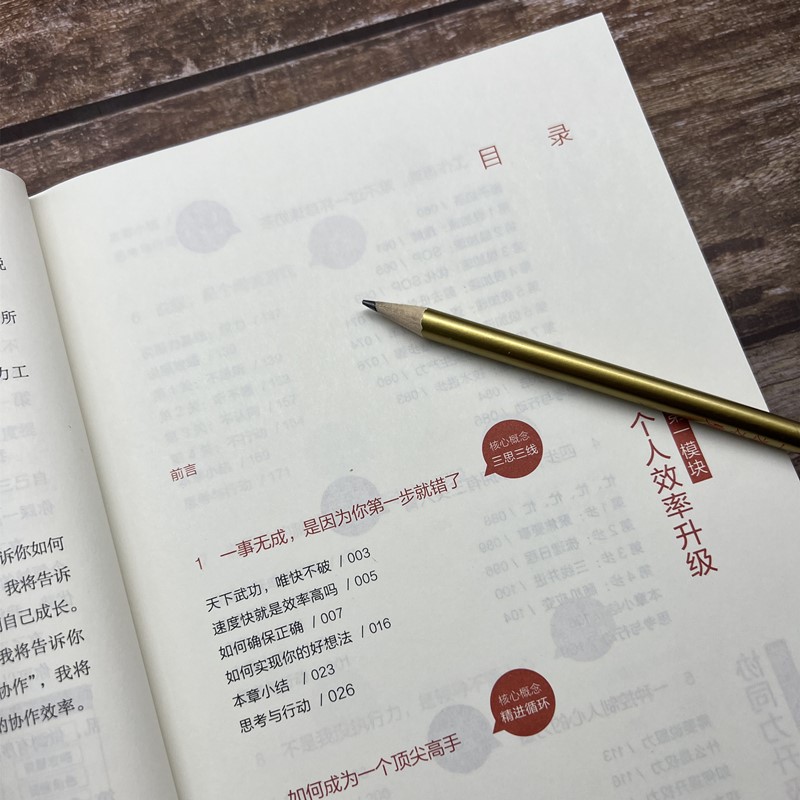 所
力工
诉你如何
，我将告诉
自己成长。
我将告诉你
协作”，我将
的协作效率。
目 录
第一模块
个人效率升级
前言
核心概念
三思三线
1 一事无成，是因为你第一步就错了
天下武功，唯快不破 / 003
速度快就是效率高吗 / 005
如何确保正确 / 007
如何实现你的好想法 / 016
本章小结 / 023
思考与行动 / 026
核心概念
精进循环
如何成为一个顶尖高手